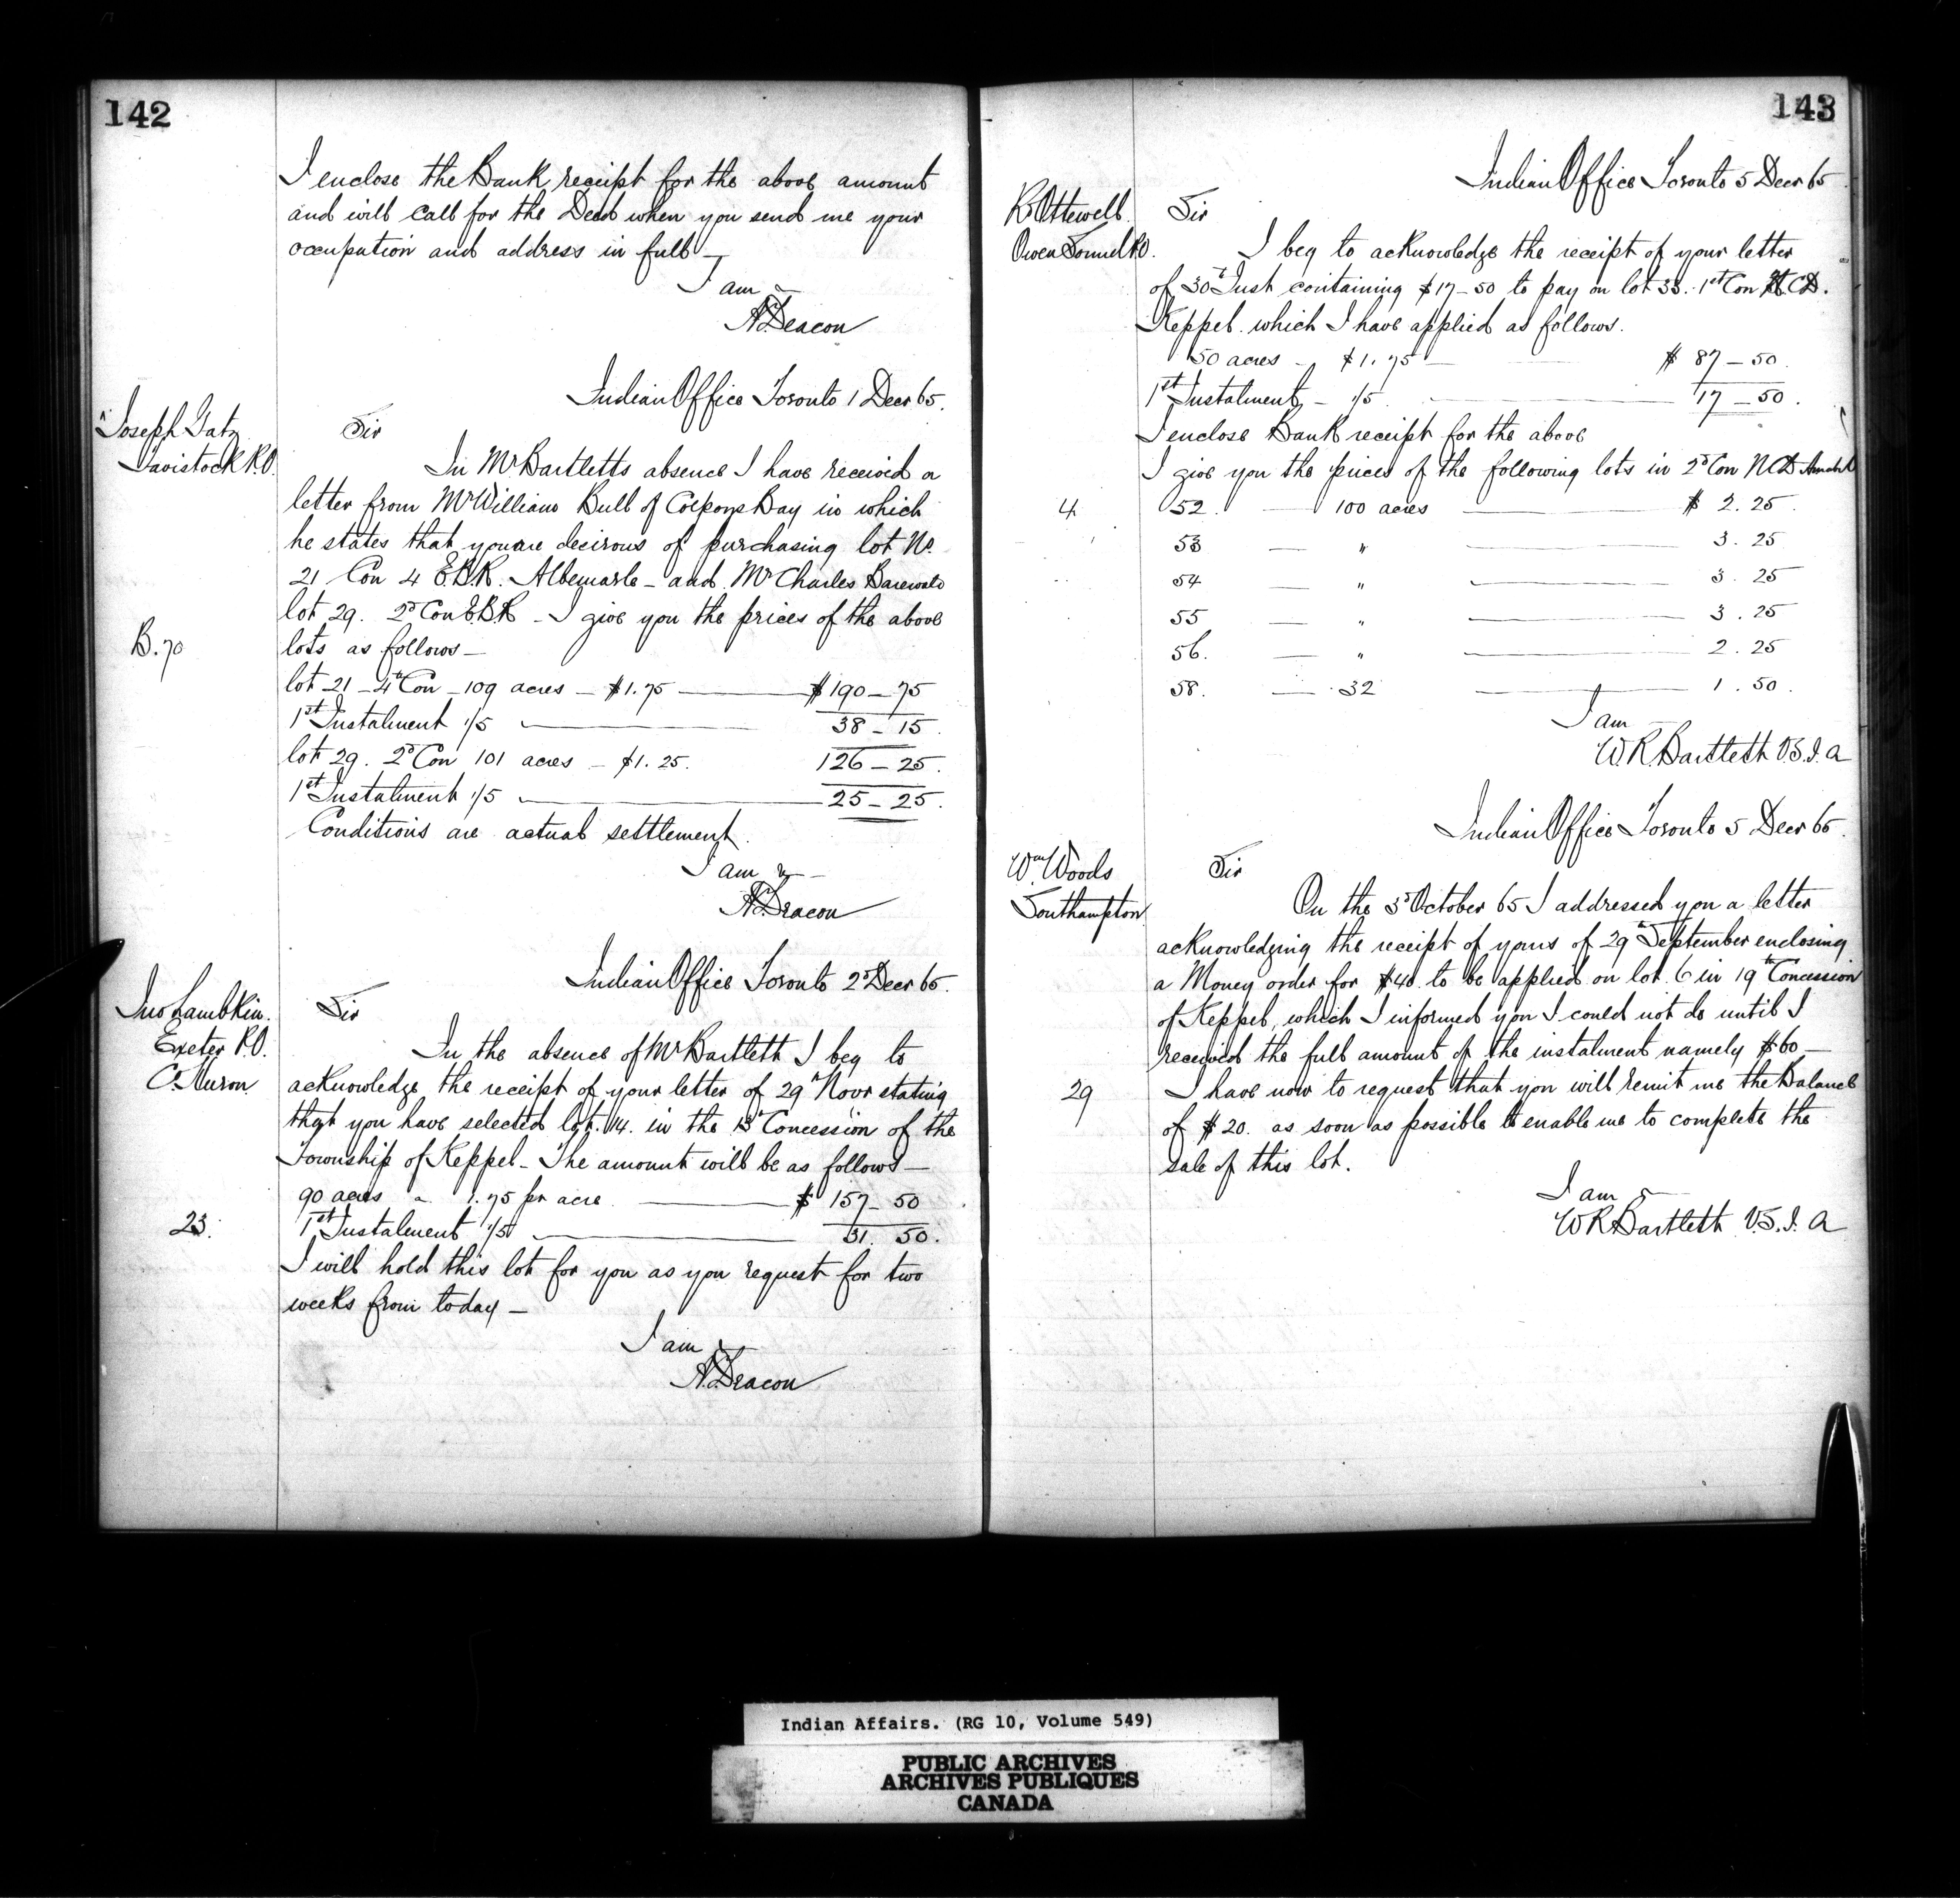 142
I enclose the Bank receipt for the above amount
and will call for the Deed when you send me your
occupation and address in full —
I am &
A. Deacon
Indian Office Toronto 1 Decr 65.
Joseph Gatz
Tavistock P.O.
Sir
In Mr Bartletts absence I have received a
letter from Mr William Bull of Colpoys Bay in which
he states that you are decirous of purchasing lot No.
21 Con 4 E.B.R. Albemarle – and Mr Charles Barewald
lot 29. 2d Con E.B.R – I give you the prices of the above
B. 70
lots as follows —
lot 21 – 4th Con – 109 acres – $1.75 — $190 – 75
1st Instalment 1/5 — 38 – 15.
lot 29. 2d Con 101 acres – $1.25. 126 – 25.
1st Instalment 1/5 — 25 – 25.
Conditions are actual settlement.
I am &
A. Deacon
Indian Office Toronto 2d Decr 65.
Jno Lambkin.
Exeter P.O.
C. Huron
Sir
In the absence of Mr Bartlett I beg to
acknowledge the receipt of your letter of 29th Novr stating
that you have selected lot. 14. in the 13th Concession of the
Township of Keppel – The amount will be as follows —
90 acres a 1.75 pr acre — $ 157 – 50
23.
1st Instalment 1/5 — 31. 50.
I will hold this lot for you as you request for two
weeks from today –
I am &
A. Deacon
143
Indian Office Toronto 5 Decr 65
R. Ottewell.
Owen Sound P.O.
Sir
I beg to acknowledge the receipt of your letter
of 30th Inst containing $17–50 to pay on lot 33. 1st Con C.D.
Keppel. which I have applied as follows.
50 acres – $1.75 — $ 87 – 50
1st Instalment – 1/5 — 17 – 50.
I enclose Bank receipt for the above
I give you the prices of the following lots in 2d Con N C D
4
52. — 100 acres — $ 2.25.
53 — " — 3.25
54 — " — 3.25
55 — " — 3.25
56. — " — 2.25
58. — 32 — 1.50.
I am
W.R. Bartlett V.S.I.A
Indian Office Toronto 5 Decr 65.
Wm Woods
Southampton
Sir
On the 3d October 65 I addressed you a letter
acknowledging the receipt of yours of 29th September enclosing
a Money order for $40. to be applied on lot 6 in 19th Concession
of Keppel, which I informed you I could not do until I
received the full amount of the instalment namely $60 —
29
I have now to request that you will remit me the Balance
of $20. as soon as possible to enable me to complete the
sale of this lot.
I am &
W R Bartlett V.S.I. A
Indian Affairs. (RG 10, Volume 549)
PUBLIC ARCHIVES
ARCHIVES PUBLIQUES
CANADA